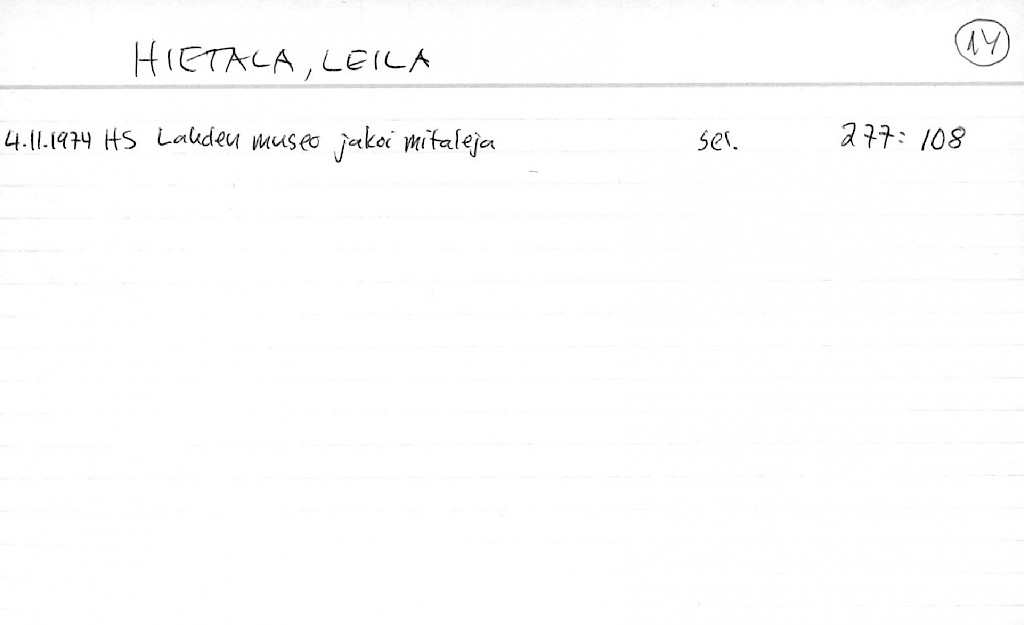 HIETALA, LEILA 14
4.11.1974 HS Lahden museo jakoi mitaleja sel. 277: 108